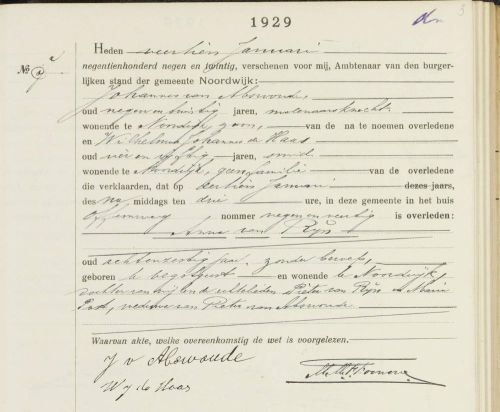 1929
3
№ 2
Heden veertien Januari
negentienhonderd negen en twintig, verschenen voor mij, Ambtenaar van den burger-
lijken stand der gemeente Noordwijk:
Johannes van Abswoude,
oud negen en twintig jaren, molenaarsknecht,
wonende te Noordwijk, zoon, van de na te noemen overledene
en Wilhelmus Johannes de Haas
oud vier en vijftig jaren, smid,
wonende te Noordwijk, geen familie van de overledene
die verklaarden, dat op dertien Januari dezes jaars,
des na middags ten drie ure, in deze gemeente in het huis
nommer negen en veertig is overleden:
Anna van Rijn
oud achtenzestig jaar, zonder beroep,
geboren te en wonende te Noordwijk,
dochter van wijlen de echtelieden Pieter van Rijn en Maria
weduwe van Pieter van Abswoude.
Waarvan akte, welke overeenkomstig de wet is voorgelezen.
J v Abswoude
W J de Haas